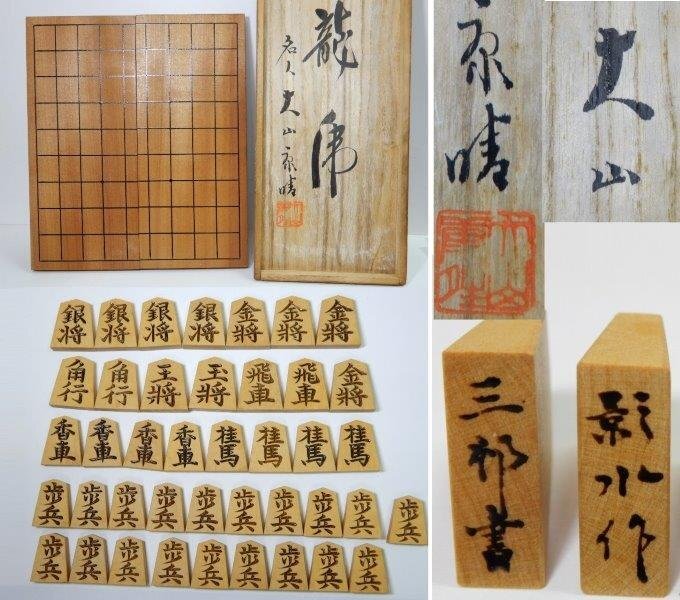 龍虎
名人 大山康晴
康晴
大山
銀将 銀将 銀将 銀将 金將 金將 金將
角行 角行 王將 玉將 飛車 飛車 金將
香車 香車 香車 香車 桂馬 桂馬 桂馬 桂馬
歩兵 歩兵 歩兵 歩兵 歩兵 歩兵 歩兵 歩兵 歩兵 歩兵
歩兵 歩兵 歩兵 歩兵 歩兵 歩兵 歩兵 歩兵 歩兵
三邨書
影水作